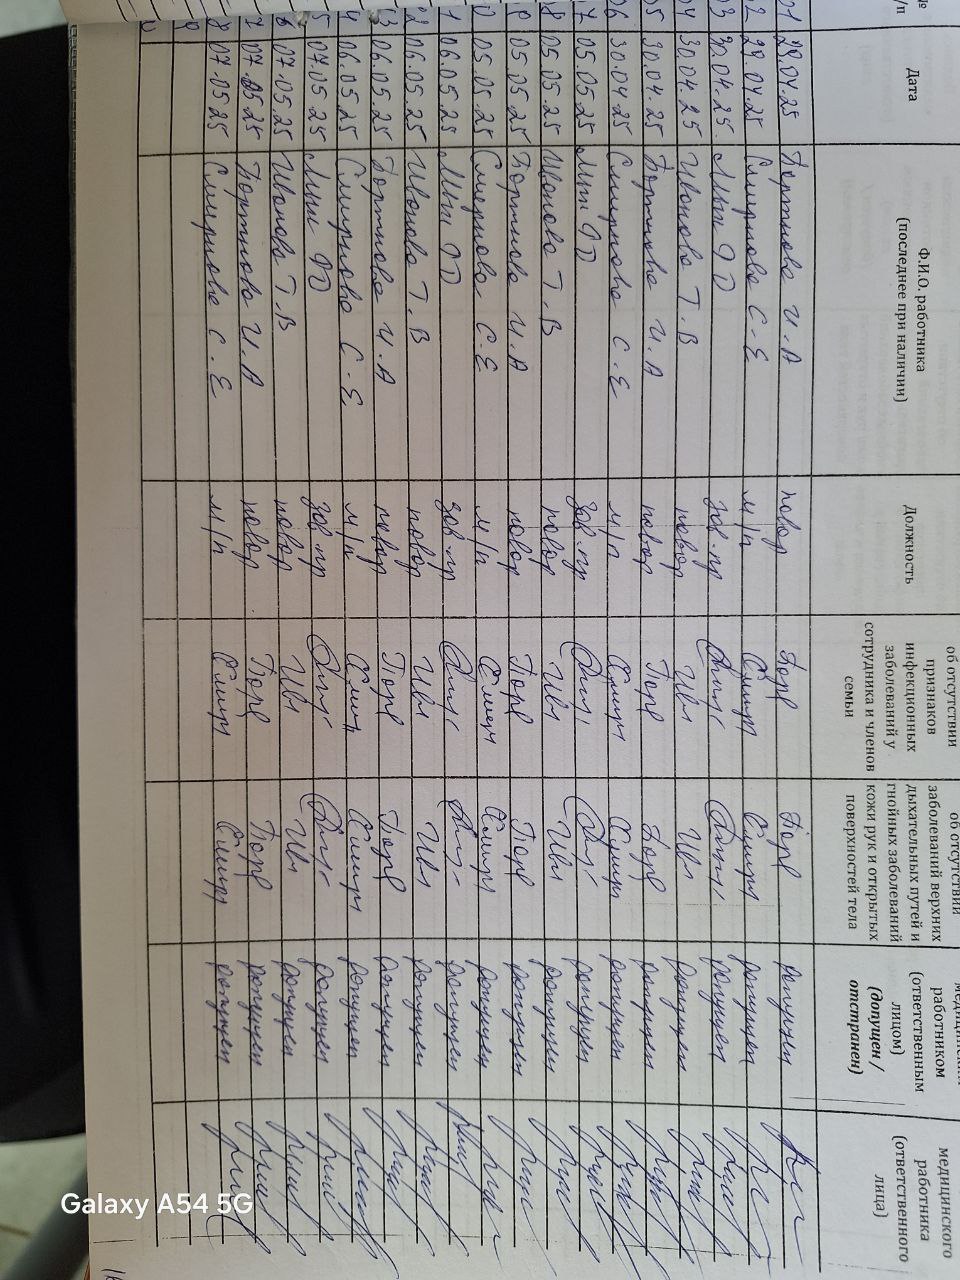 № п/п
Дата
Ф.И.О. работника (последнее при наличии)
Должность
об отсутствии признаков инфекционных заболеваний у сотрудника и членов семьи
об отсутствии заболеваний верхних дыхательных путей и гнойных заболеваний кожи рук и открытых поверхностей тела
работником (ответственным лицом) (допущен / отстранен)
медицинского работника (ответственного лица)
01 29.04.25 Бортнова И.А повар Борт Борт допущен
02 29.04.25 Смирнова С.Е м/п Смирн Смирн допущен
03 30.04.25 зав.пр допущен
04 30.04.25 Иванова Т.В повар Ива Ива допущен
05 30.04.25 Бортнова И.А повар Борт Борт допущен
06 30.04.25 Смирнова С.Е м/п Смирн Смирн допущен
7 05.05.25 зав.пр допущен
8 05.05.25 Иванова Т.В повар Ива Ива допущен
9 05.05.25 Бортнова И.А повар Борт Борт допущен
0 05.05.25 Смирнова С.Е м/п Смирн Смирн допущен
1 06.05.25 зав.пр допущен
2 06.05.25 Иванова Т.В повар Ива Ива допущен
3 06.05.25 Бортнова И.А повар Борт Борт допущен
4 06.05.25 Смирнова С.Е м/п Смирн Смирн допущен
5 07.05.25 зав.пр допущен
6 07.05.25 Иванова Т.В повар Ива Ива допущен
7 07.05.25 Бортнова И.А повар Борт Борт допущен
8 07.05.25 Смирнова С.Е м/п Смирн Смирн допущен
Galaxy A54 5G